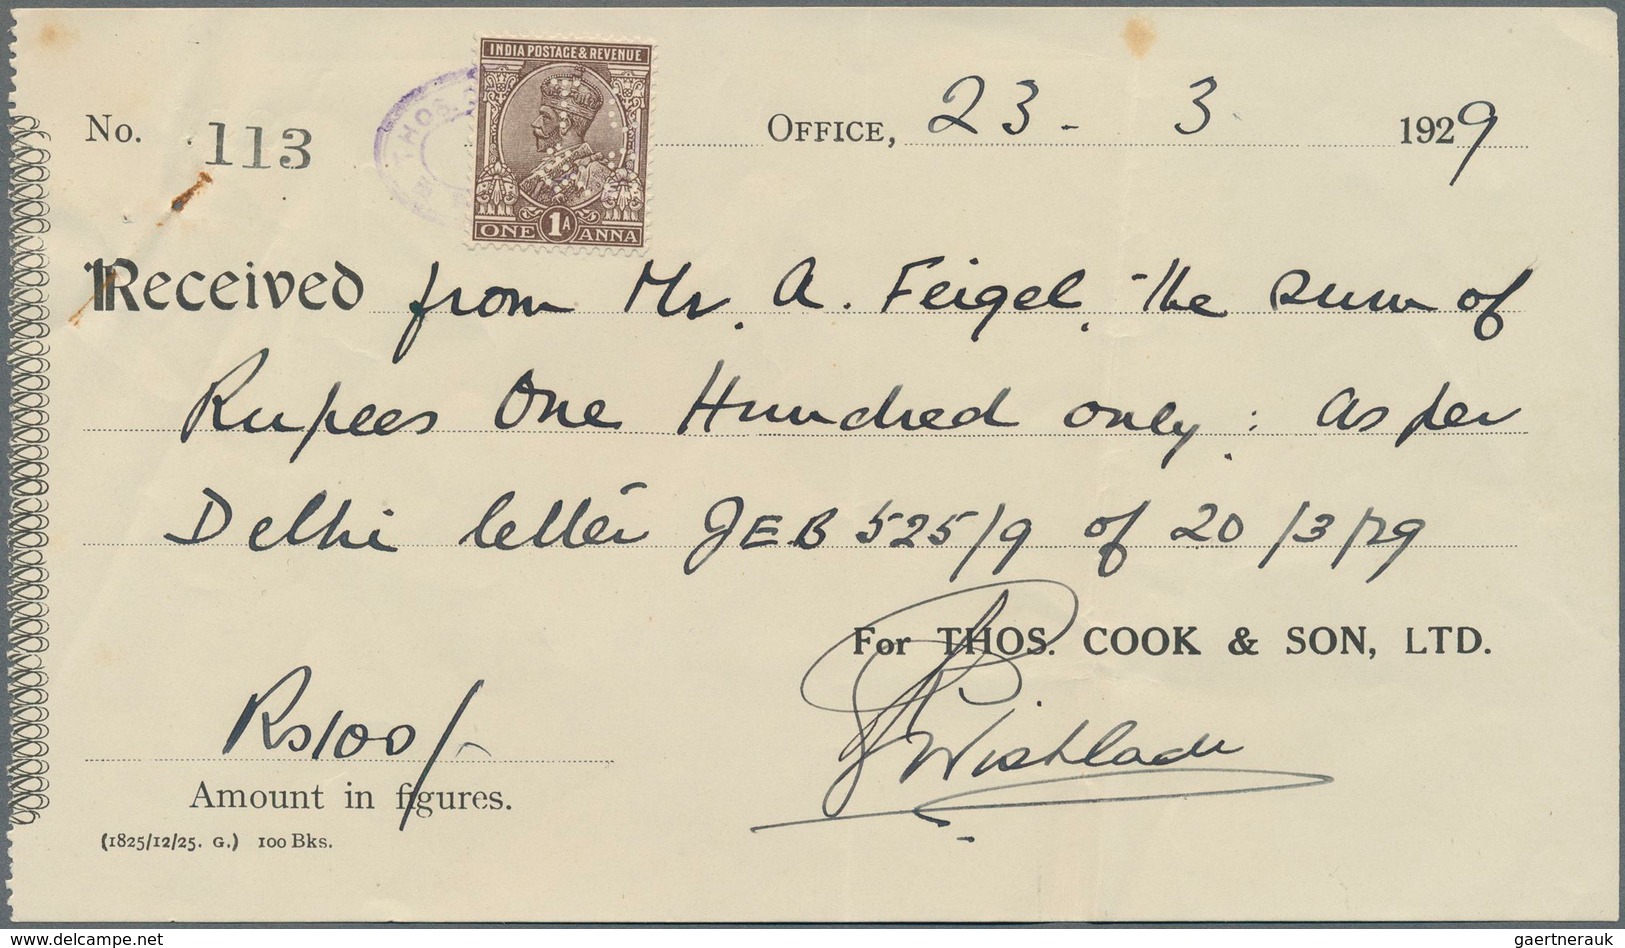 INDIA POSTAGE & REVENUE
1A
ONE ANNA
THOS.
No. 113 OFFICE, 23 - 3 1929
Received from Mr. A. Feigel, the sum of
Rupees One Hundred only: as per
Delhi letter JEB 525/9 of 20/3/29
For THOS. COOK & SON, LTD.
Rs100/-
Amount in figures.
(1825/12/25. G.) 100 Bks.
www.delcampe.net
gaertnerauk